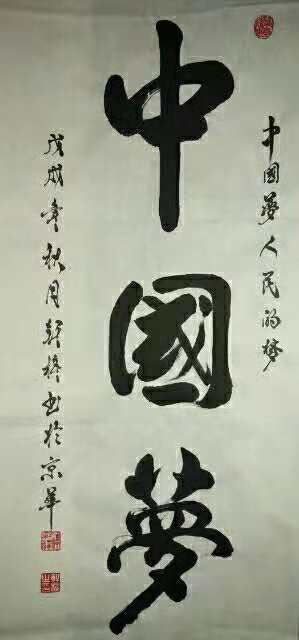 中國夢人民的梦
中國夢
戊戌年秋月郭栋书於京華